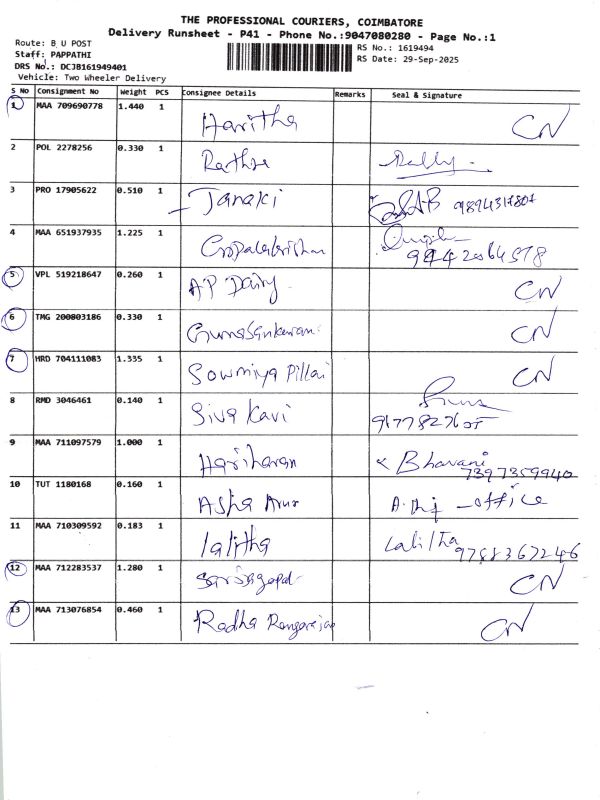 THE PROFESSIONAL COURIERS, COIMBATORE
Delivery Runsheet - P41 - Phone No.:9047080280 - Page No.:1
Route: B U POST
Staff: PAPPATHI
DRS No.: DCJB161949401
Vehicle: Two Wheeler Delivery
RS No.: 1619494
RS Date: 29-Sep-2025
S No Consignment No Weight PCS Consignee Details Remarks Seal & Signature
1 MAA 709690778 1.440 1 Haritha CN
2 POL 2278256 0.330 1
3 PRO 17905622 0.510 1 Janaki
4 MAA 651937935 1.225 1 Gopalakrishnan
5 VPL 519218647 0.260 1 AP Dairy CN
6 TMG 200803186 0.330 1 Gunasankaran CN
7 HRD 704111083 1.335 1 Sowmiya Pillai CN
8 RMD 3046461 0.140 1 Siva Kavi
9 MAA 711097579 1.000 1 Hariharan Bhavani
7397359940
10 TUT 1180168 0.160 1 Asha Arur - office
11 MAA 710309592 0.183 1 Lalitha Lalitha
12 MAA 712283537 1.280 1 CN
13 MAA 713076854 0.460 1 Radha Rangarajan CN